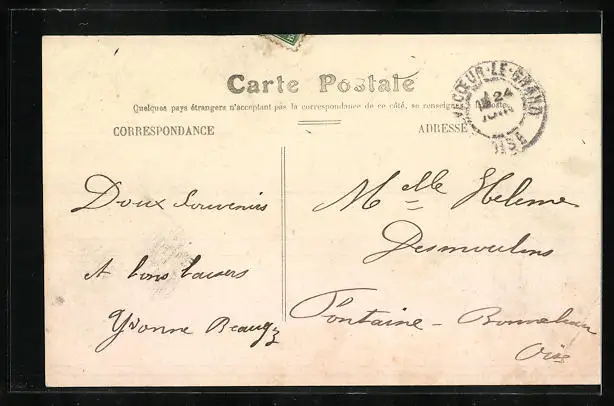 Carte Postale
Quelques pays étrangers n'acceptant pas la correspondance de ce côté, se renseigner Poste
CORRESPONDANCE
ADRESSE
CŒUR-LE-GRAND
24
OISE
Doux Souvenirs
et bons baisers
Yvonne
Melle Helene
Desmoulins
Fontaine - Bonneleau
Oise